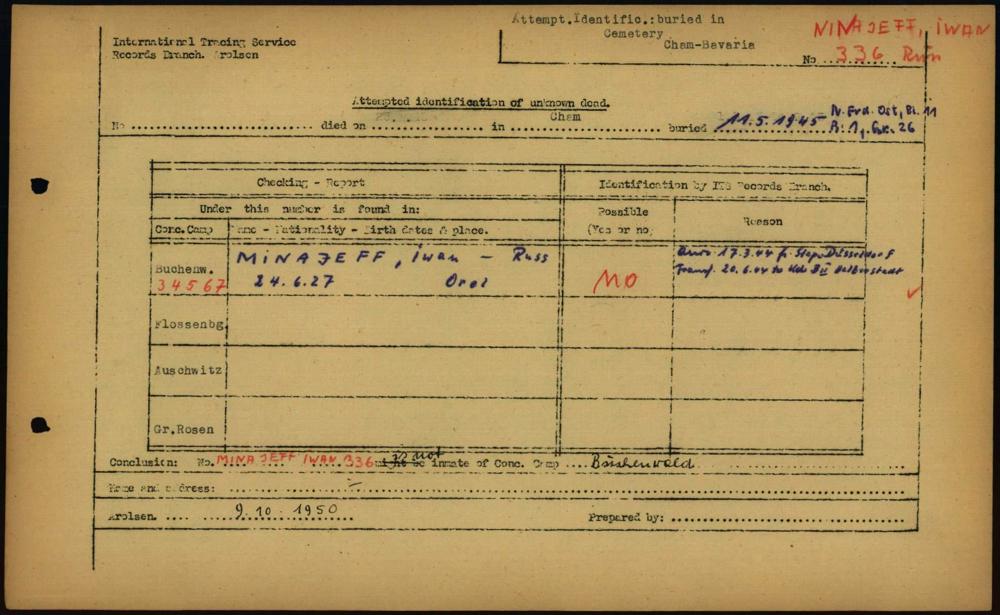 Attempt. Identific.: buried in
Cemetery
Cham-Bavaria
NINAJEFF, IWAN
No ... 336 Russ
International Tracing Service
Records Branch. Arolsen
Attempted identification of unknown dead.
No ........ died on ........ in ........ Cham ........ buried 11.5.1945 N. Frd. Ost, Bl. 11
R: 1, Gr. 26
Checking - Report
Identification by ITS Records Branch.
Under this number is found in:
Possible
(Yes or no)
Reason
Conc. Camp
Name - Nationality - Birth dates & place.
Buchenw.
34567
MINAJEFF, Iwan - Russ
24.6.27 Orel
NO
17.3.44 fr. Stapo Düsseldorf
Transf. 20.6.44 to Kdo B II Halberstadt
✓
Flossenbg
Auschwitz
Gr. Rosen
Conclusion: No. MINAJEFF IWAN 336 might be is not inmate of Conc. Camp .... Buchenwald
Name and address: ........ -
Arolsen, .... 9.10.1950
Prepared by: ........